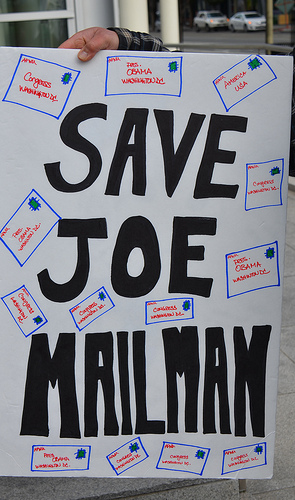 APWU
Congress
WASHINGTON D.C.
APWU
PRES.
OBAMA
WASHINGTON D.C.
APWU
AMERICA
USA
SAVE
Congress
WASHINGTON D.C.
PRES.
OBAMA
WASHINGTON D.C.
JOE
PRES.
OBAMA
WASHINGTON D.C.
Congress
WASHINGTON
D.C.
CONGRESS
WASHINGTON D.C.
CONGRESS
WASHINGTON D.C.
MAILMAN
PRES.
OBAMA
WASHINGTON D.C.
Congress
WASHINGTON D.C.
Congress
WASHINGTON D.C.
APWU
Congress
WASHINGTON D.C.